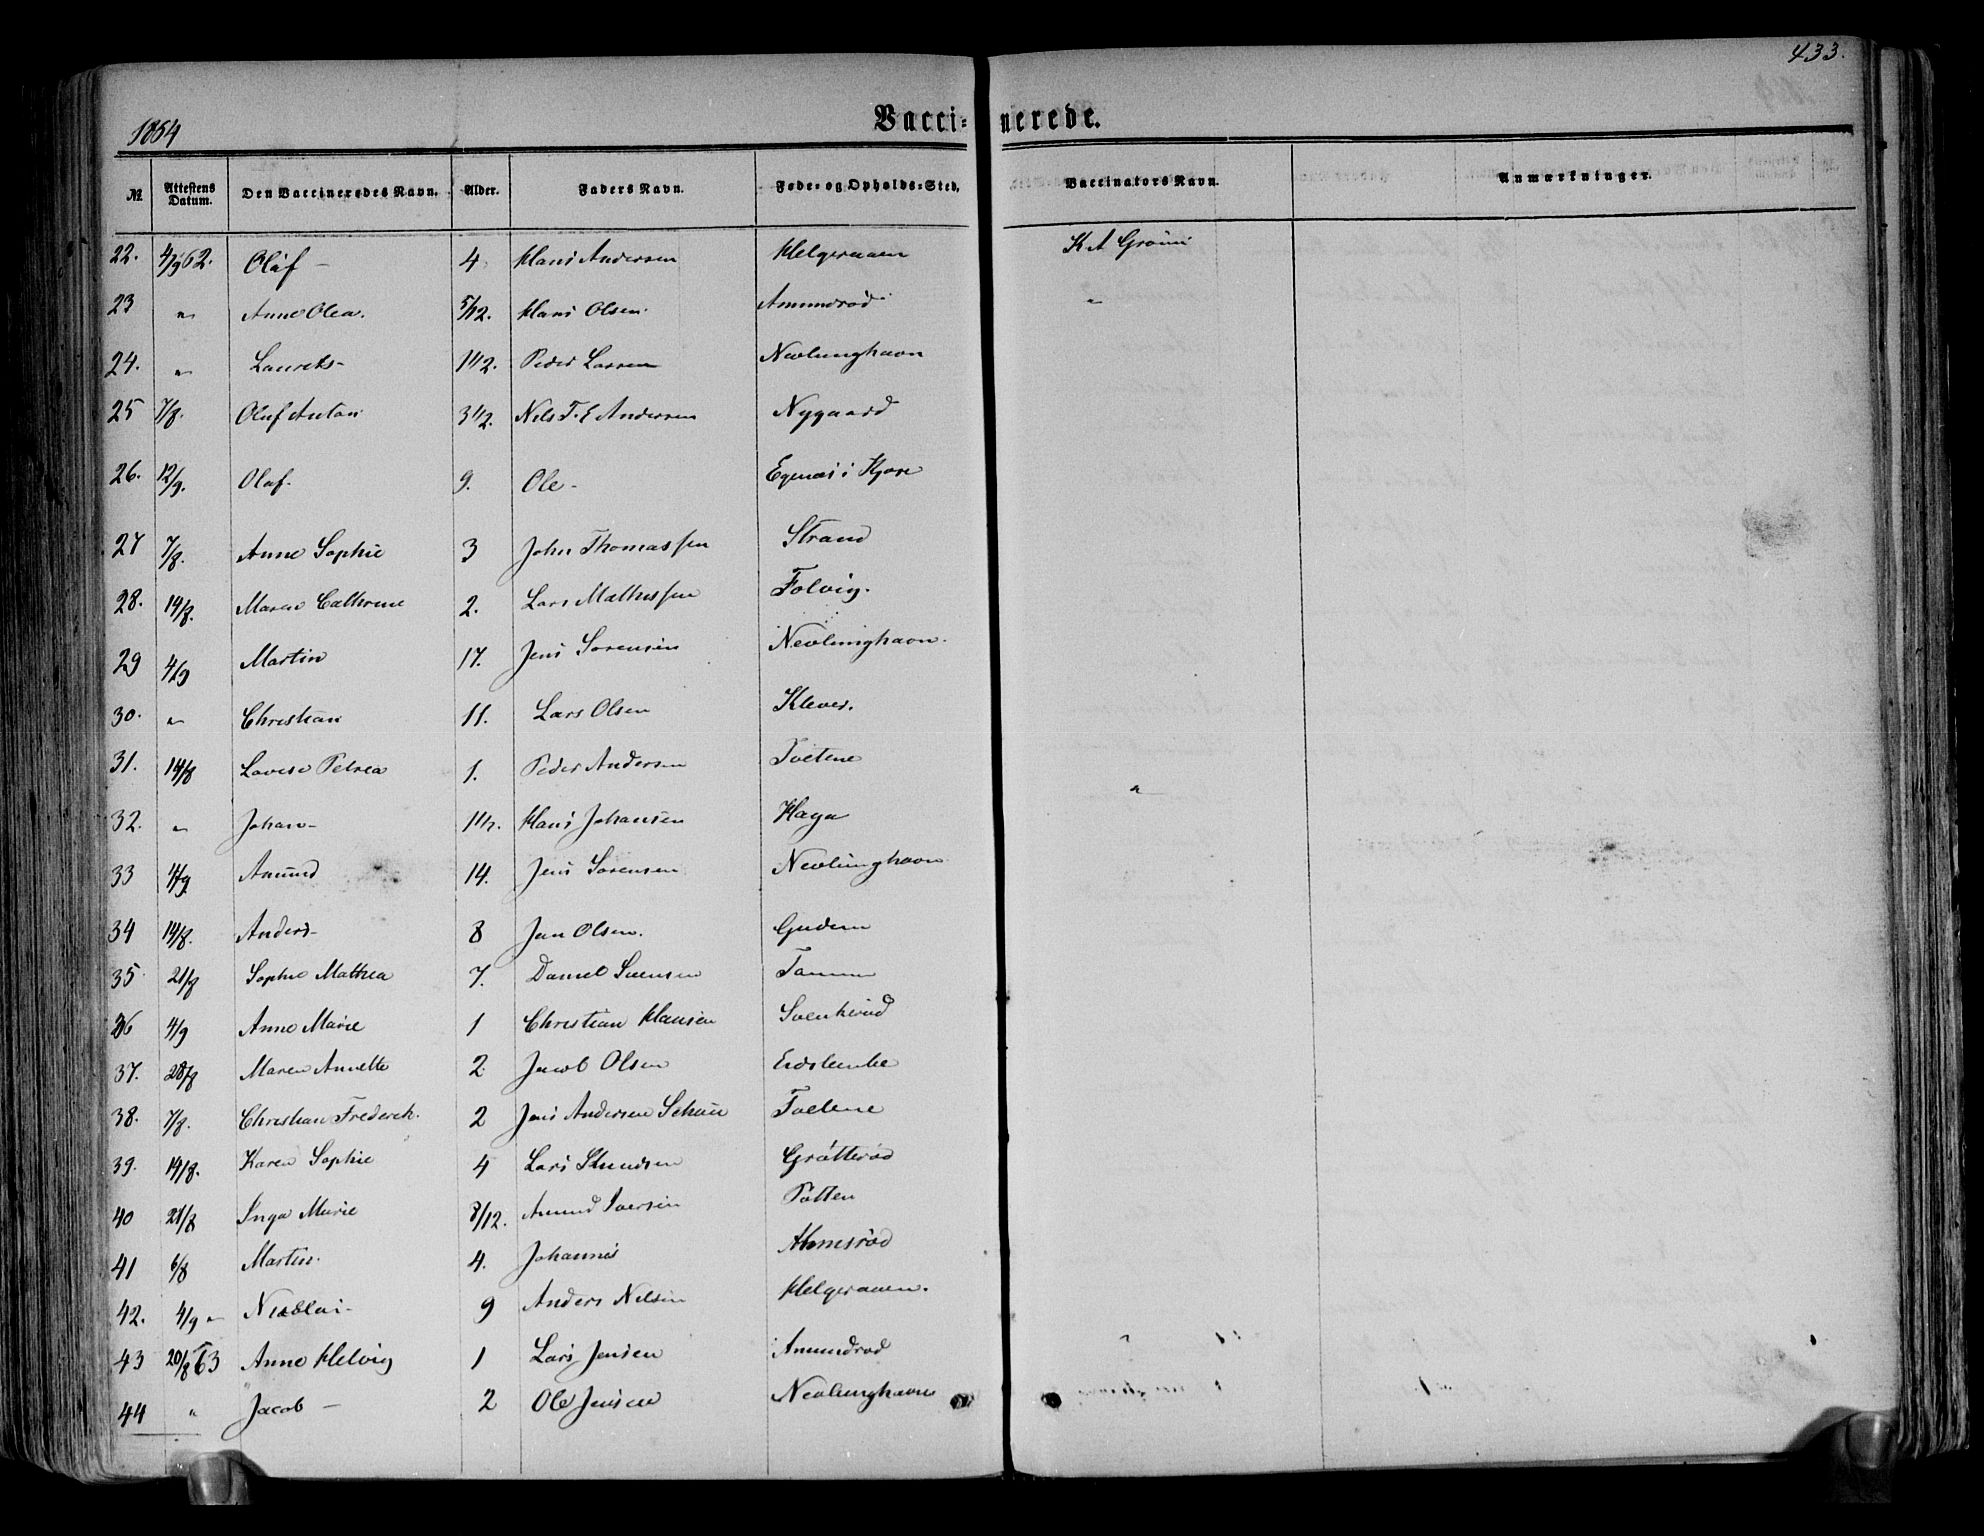 433.
1864
Vaccinerede.
№ Attestens Datum. Den Vaccineredes Navn. Alder. Faders Navn. Føde- og Opholds-Sted. Vaccinators Navn. Anmærkninger.
22. 4/9 62. Olaf – 4 Hans Andersen Helgeraaen K A
23 " Anne Olea. 5/12. Hans Olsen. Amundrød "
24. " Laurets – 1 1/2. Peder Larsen Nevlunghavn
25 7/8. Oluf Anton 3 1/2. Nils T. E Andersen Nygaard
26. 12/9. Olaf. 9. Ole – i Kjose
27 7/8. Anne Sophie 3 John Thomassen Strand
28. 14/8. Maren Cathrine 2. Lars Mathissen Folvig.
29 4/9 Martin 17. Jens Sørensen Nevlunghavn.
30. " Christian 11. Lars Olsen Klever.
31. 14/8 Lovise Petrea 1. Peder Andersen Tvetene
32. " Johan – 1 1/2. Hans Johansen Haga "
33 11/9 Amund 14. Jens Sørensen Nevlunghavn
34 14/8. Anders – 8 Jan Olsen. Gudem
35 21/8 Sophie Mathea 7. Daniel Svensen Tanum
36 4/9 Anne Marie 1 Christian Hansen Svenkerød
37. 28/8 Maren Annette 2 Jacob Olsen
38. 7/8. Christian Frederck. 2 Jens Andersen Tvetene
39. 14/8. Karen Sophie 4 Lars Knudsen Grøtterød
40 21/8 Inga Marie 8/12. Amund Iversen Pøtten
41 6/8 Martin. 4. Johannes
42. 4/9 " Nicolai – 9 Anders Nilsen Helgeraaen.
43 20/8 63 Anne Helvig 1 Lars Jensen Amundrød
44 " Jacob – 2 Ole Jensen Nevlunghavn